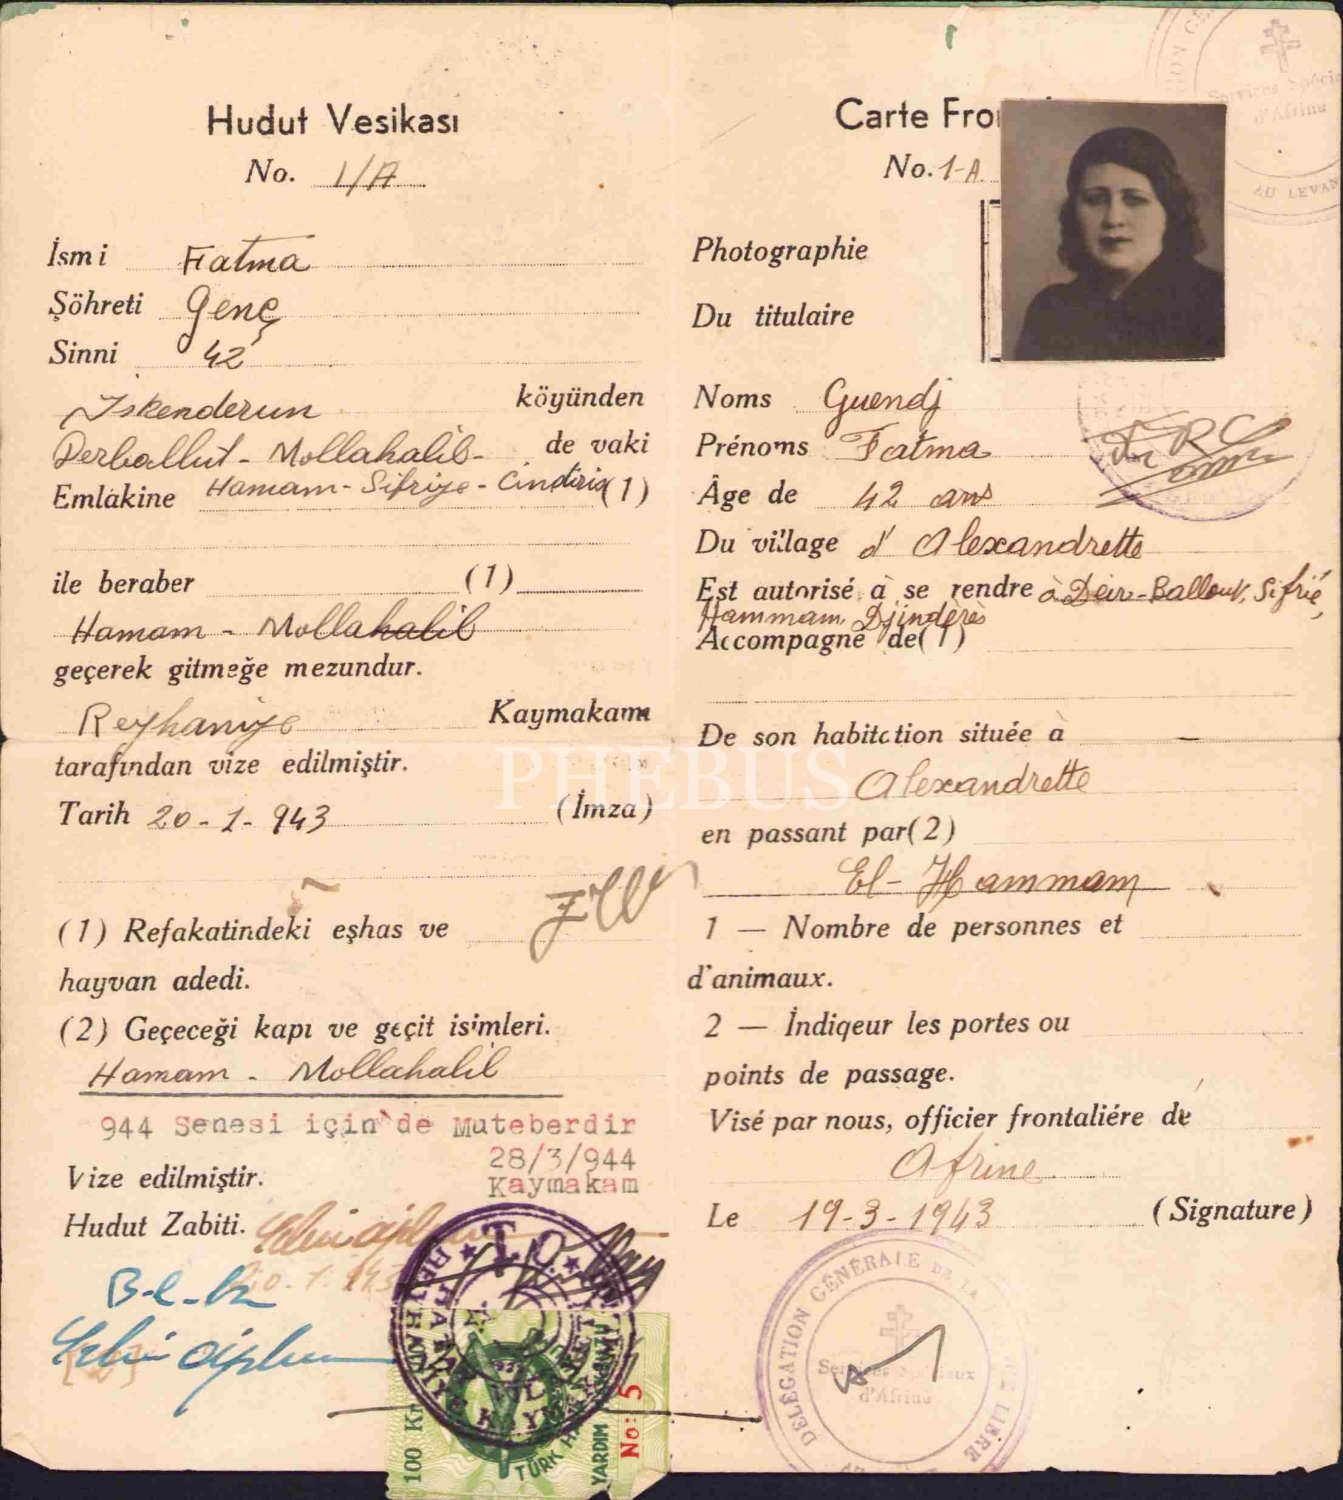 Hudut Vesikası
No. 1/A
İsmi Fatma
Şöhreti Genç
Sinni 42
İskenderun köyünden
Derballut - Mollahalil - de vaki
Emlâkine Hamam - Sifriye - Cindiris (1)
ile beraber (1)
Hamam - Mollahalil
geçerek gitmeğe mezundur.
Reyhaniye Kaymakamı
tarafından vize edilmiştir.
Tarih 20-1-943 (İmza)
(1) Refakatindeki eşhas ve
hayvan adedi.
(2) Geçeceği kapı ve geçit isimleri.
Hamam - Mollahalil
944 Senesi için de Muteberdir
28/3/944
Kaymakam
Vize edilmiştir.
Hudut Zabiti.
20.1.943
T.C.
REYHANİYE KAYMAK
100 Kr
TÜRK HA
YARDIM
No: 5
Carte Fro
No. 1-A.
Photographie
Du titulaire
Noms Guendj
Prénoms Fatma
Âge de 42 ans
Du village d' Alexandrette
Est autorisé à se rendre à Deir-Ballout, Sifrié,
Hammam, Djindérès
Accompagné de (1)
De son habitction située à
Alexandrette
en passant par (2)
El-Hammam
1 — Nombre de personnes et
d'animaux.
2 — İndiqeur les portes ou
points de passage.
Visé par nous, officier frontaliére de
Afrine
Le 19-3-1943 (Signature)
DÉLÉGATION GÉNÉRALE DE LA LIBRE
Services Spéciaux
d'Afrine
Services Spécia
d'Afrine
AU LEVAN
PHEBUS